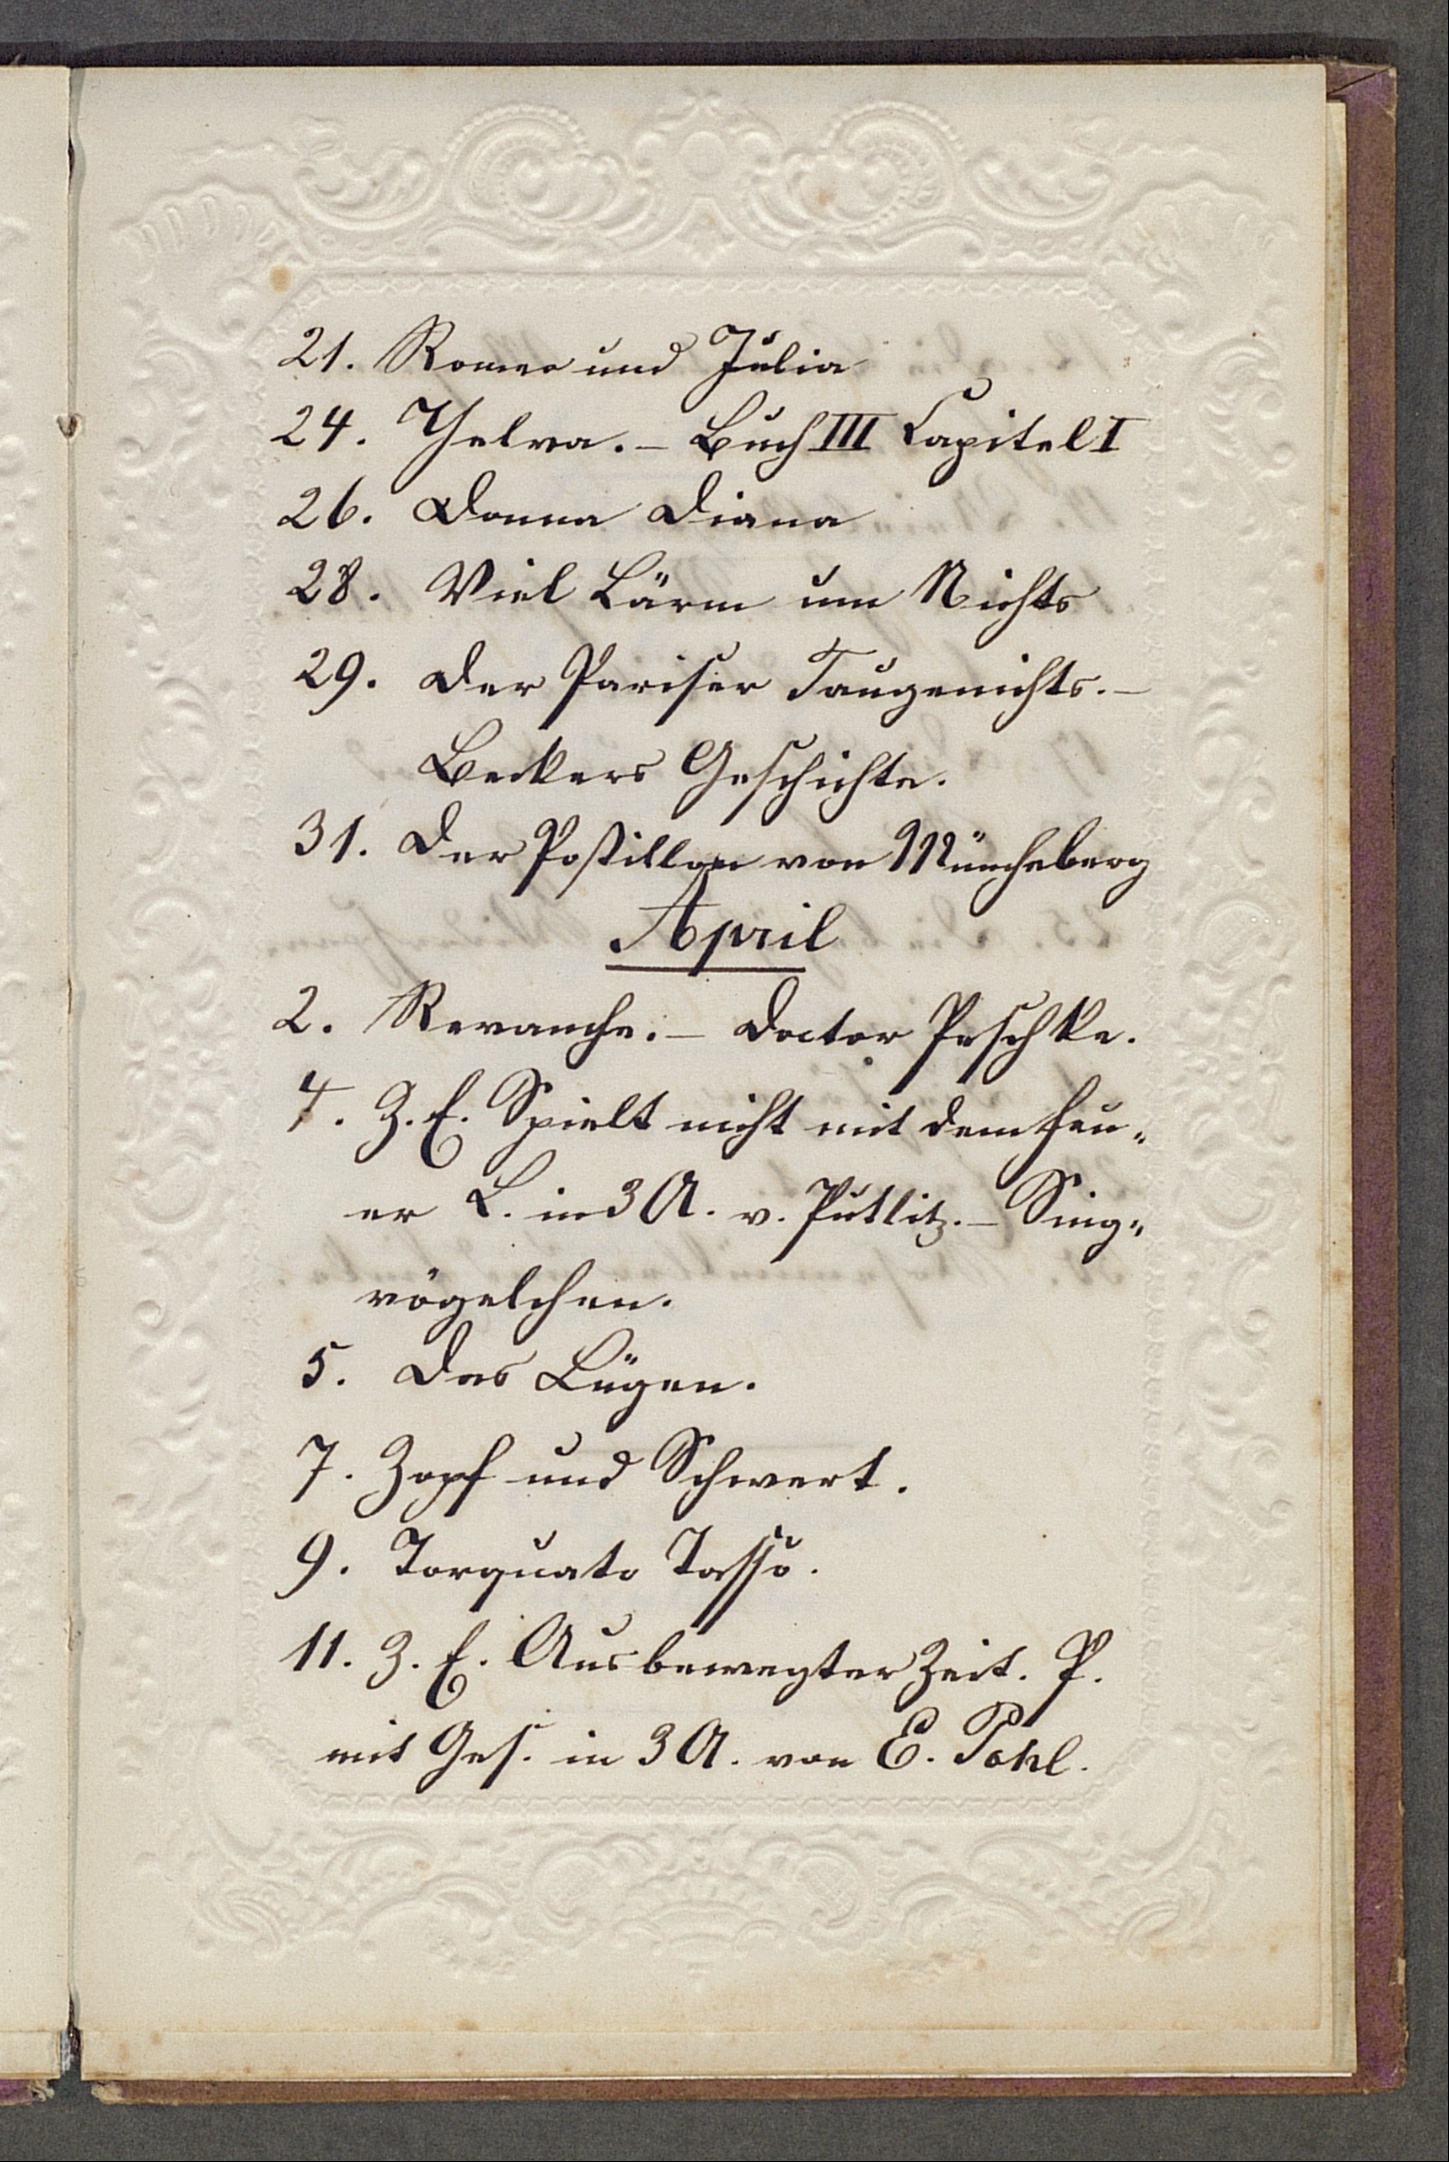 21. Romeo und Julia
24. Yelva. – Buch III Capitel I
26. Donna Diana
28. Viel Lärm um Nichts
29. Der Pariser Taugenichts. –
Beckers Geschichte.
31. Der Postillon von Müncheberg
April
2. Revanche. – Doctor Peschke.
4. Z. E. Spielt nicht mit dem Feu-
er L. in 3 A. v. Putlitz. – Sing-
vögelchen.
5. Das Lügen.
7. Zopf und Schwert.
9. Torquato Tasso.
11. Z. E. Aus bewegter Zeit. P.
mit Ges. in 3 A. von E. Pohl.